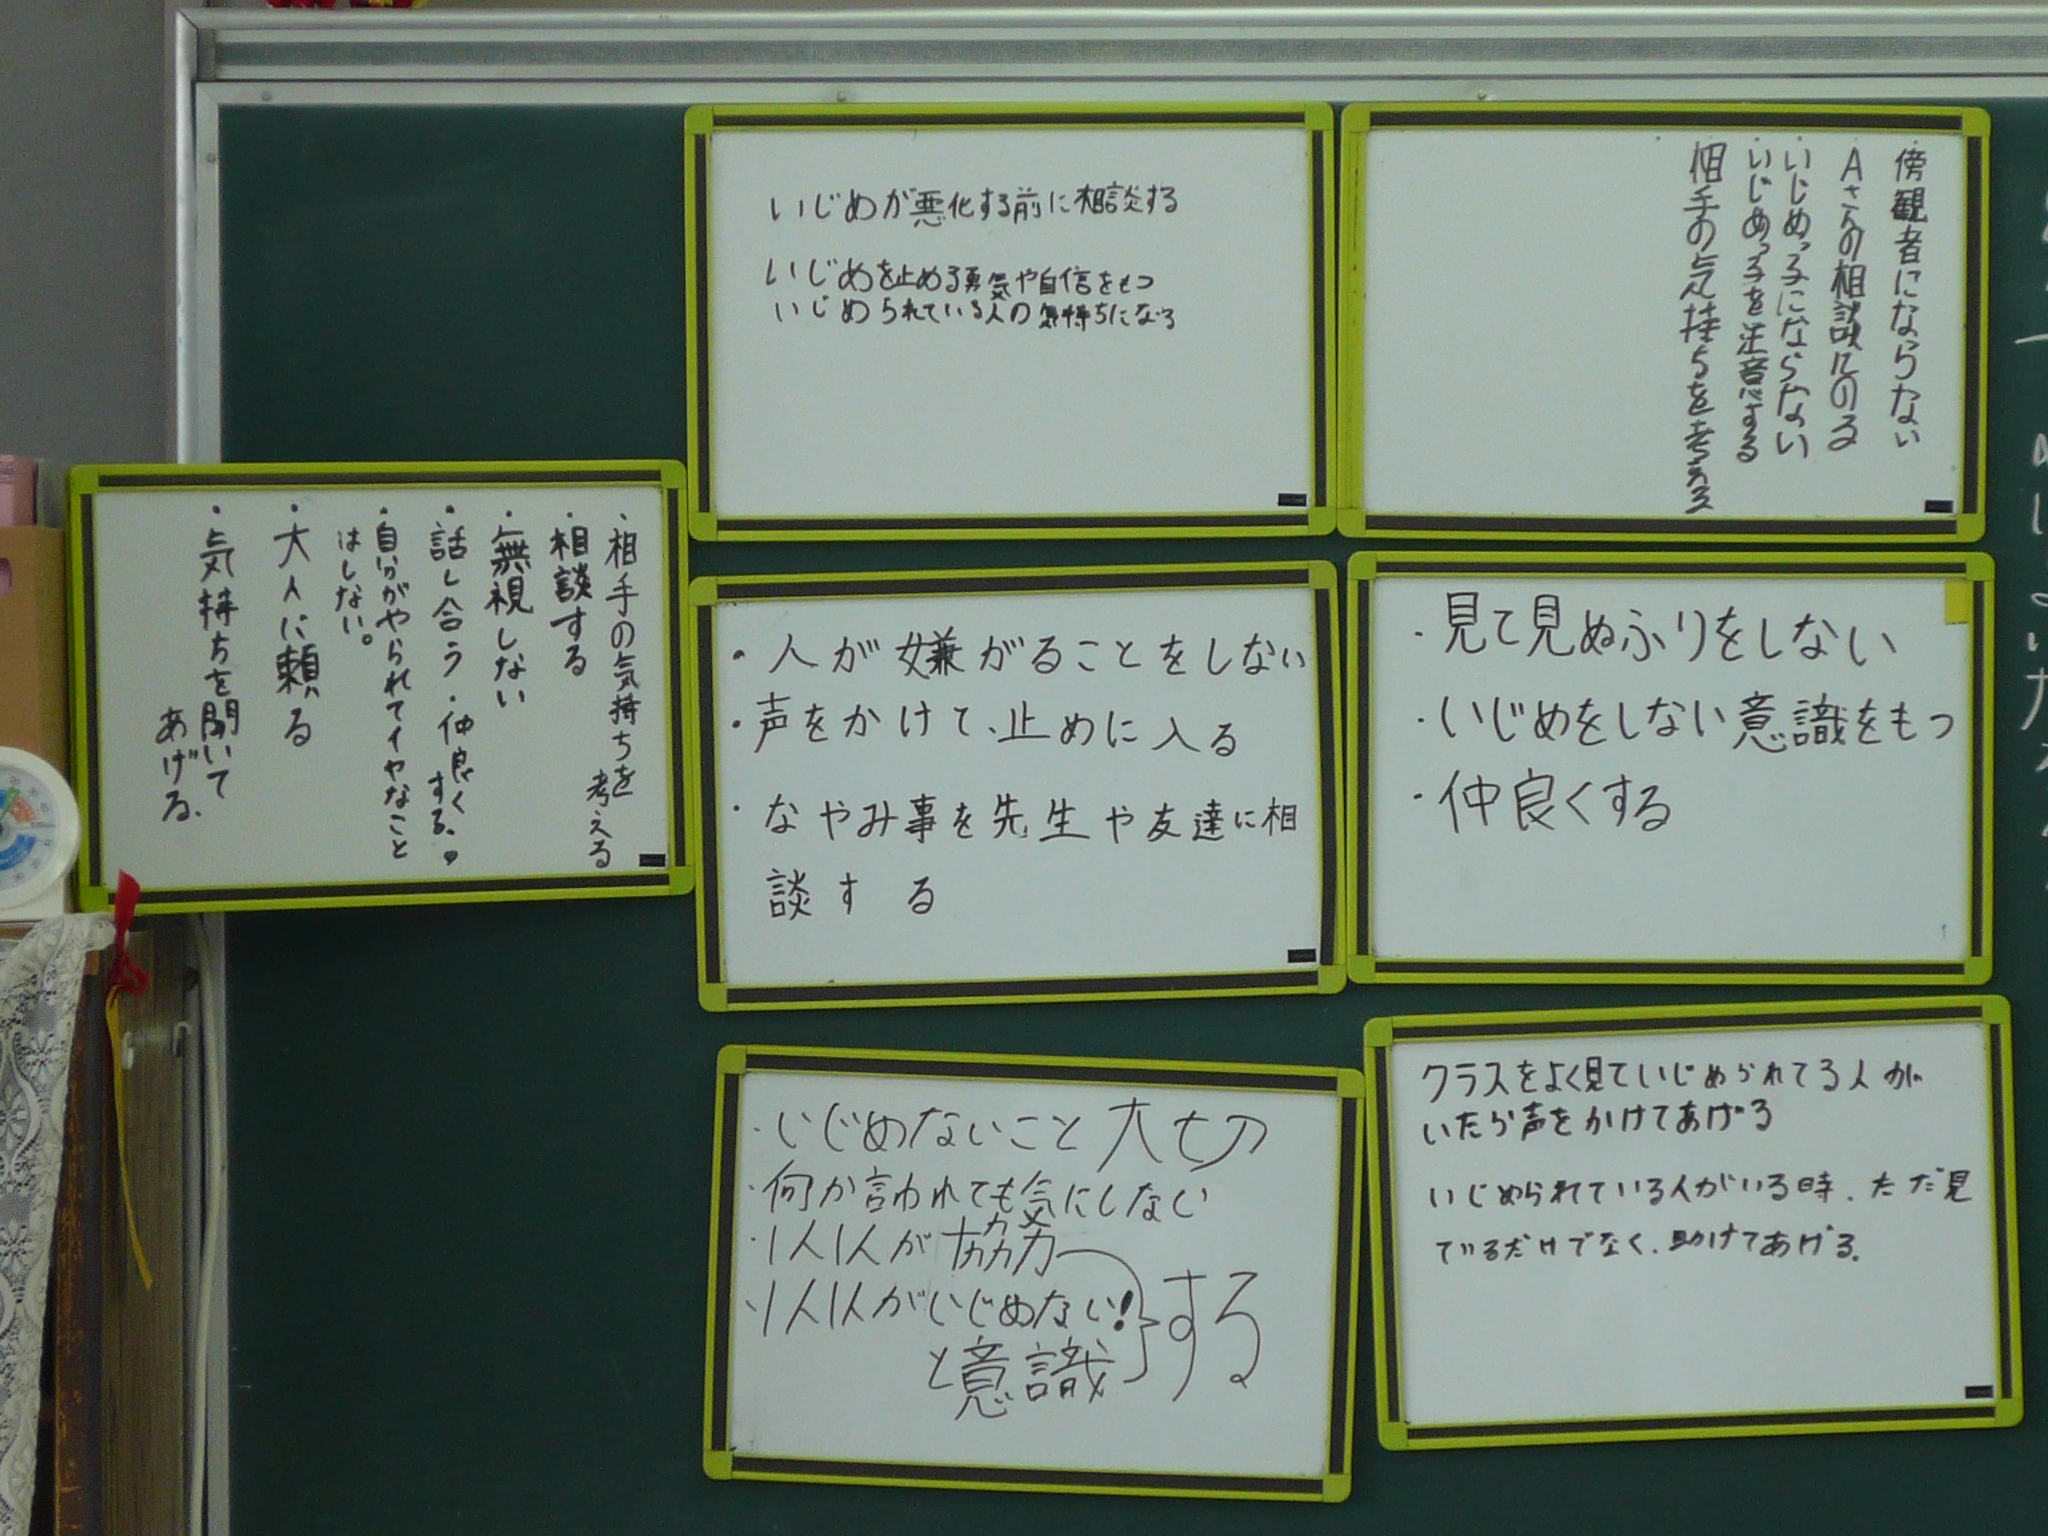 いじめが悪化する前に相談する
いじめを止める勇気や自信をもつ
いじめられている人の気持ちになる
傍観者にならない
Aさんの相談にのる
・いじめっ子にならない
・いじめっ子を注意する
・相手の気持ちを考える
・相手の気持ちを
考える
・相談する
・無視しない
・話し合う・仲良く
する。
・自分がやられてイヤなこと
はしない。
・大人に頼る
・気持ちを聞いて
あげる。
・人が嫌がることをしない
・声をかけて、止めに入る
・なやみ事を先生や友達に相
談する
・見て見ぬふりをしない
・いじめをしない意識をもつ
・仲良くする
・いじめないこと大切
・何か言われても気にしない
・1人1人が協力
・1人1人がいじめない!
と意識
する
クラスをよく見ていじめられてる人が
いたら声をかけてあげる
いじめられている人がいる時、ただ見
ているだけでなく、助けてあげる。